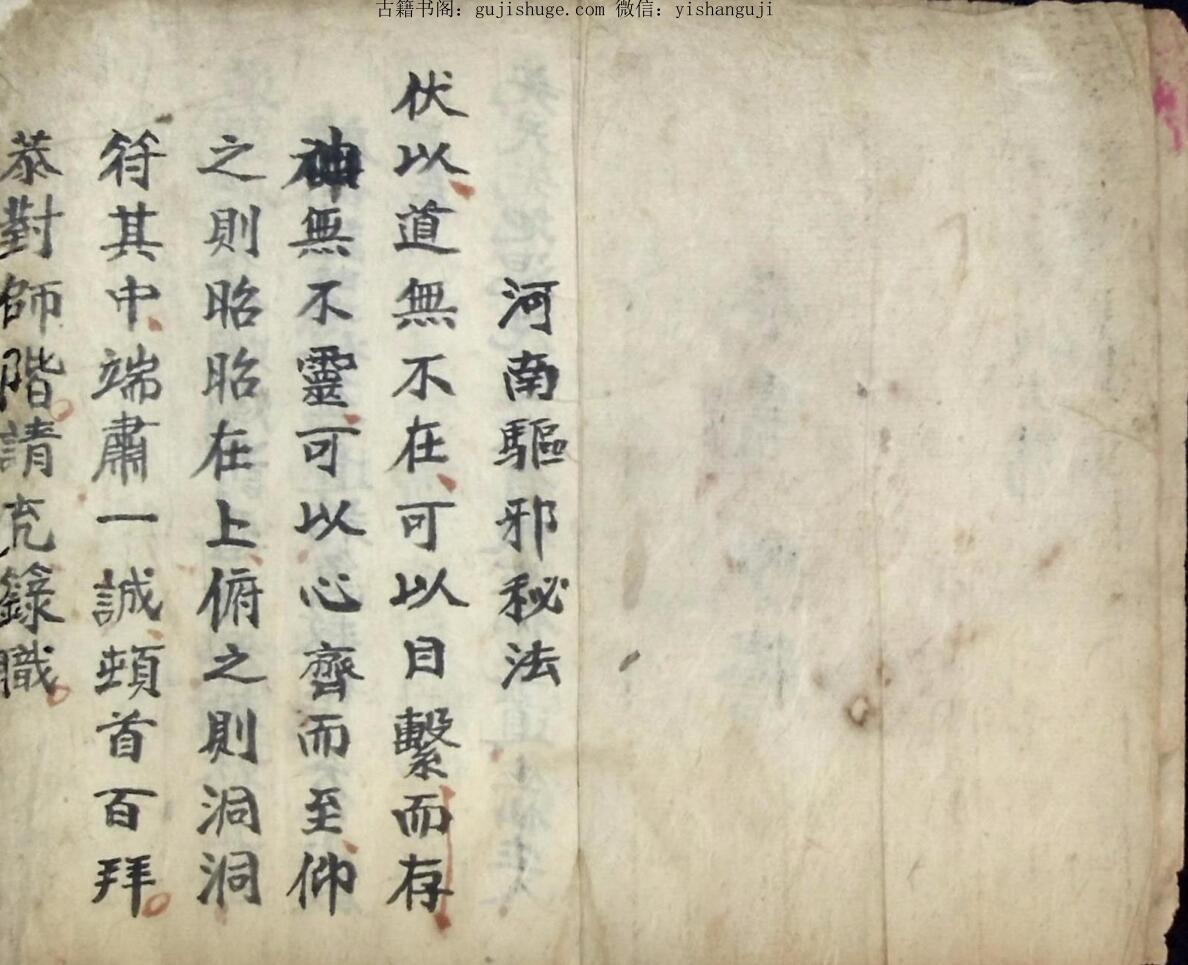 古籍书阁：gujishuge.com 微信：yishanguji
河南驅邪秘法
伏以道無不在可以目繫而存
神無不靈可以心齊而至仰
之則昭昭在上俯之則洞洞
符其中端肅一誠頓首百拜
恭對師階請充籙職